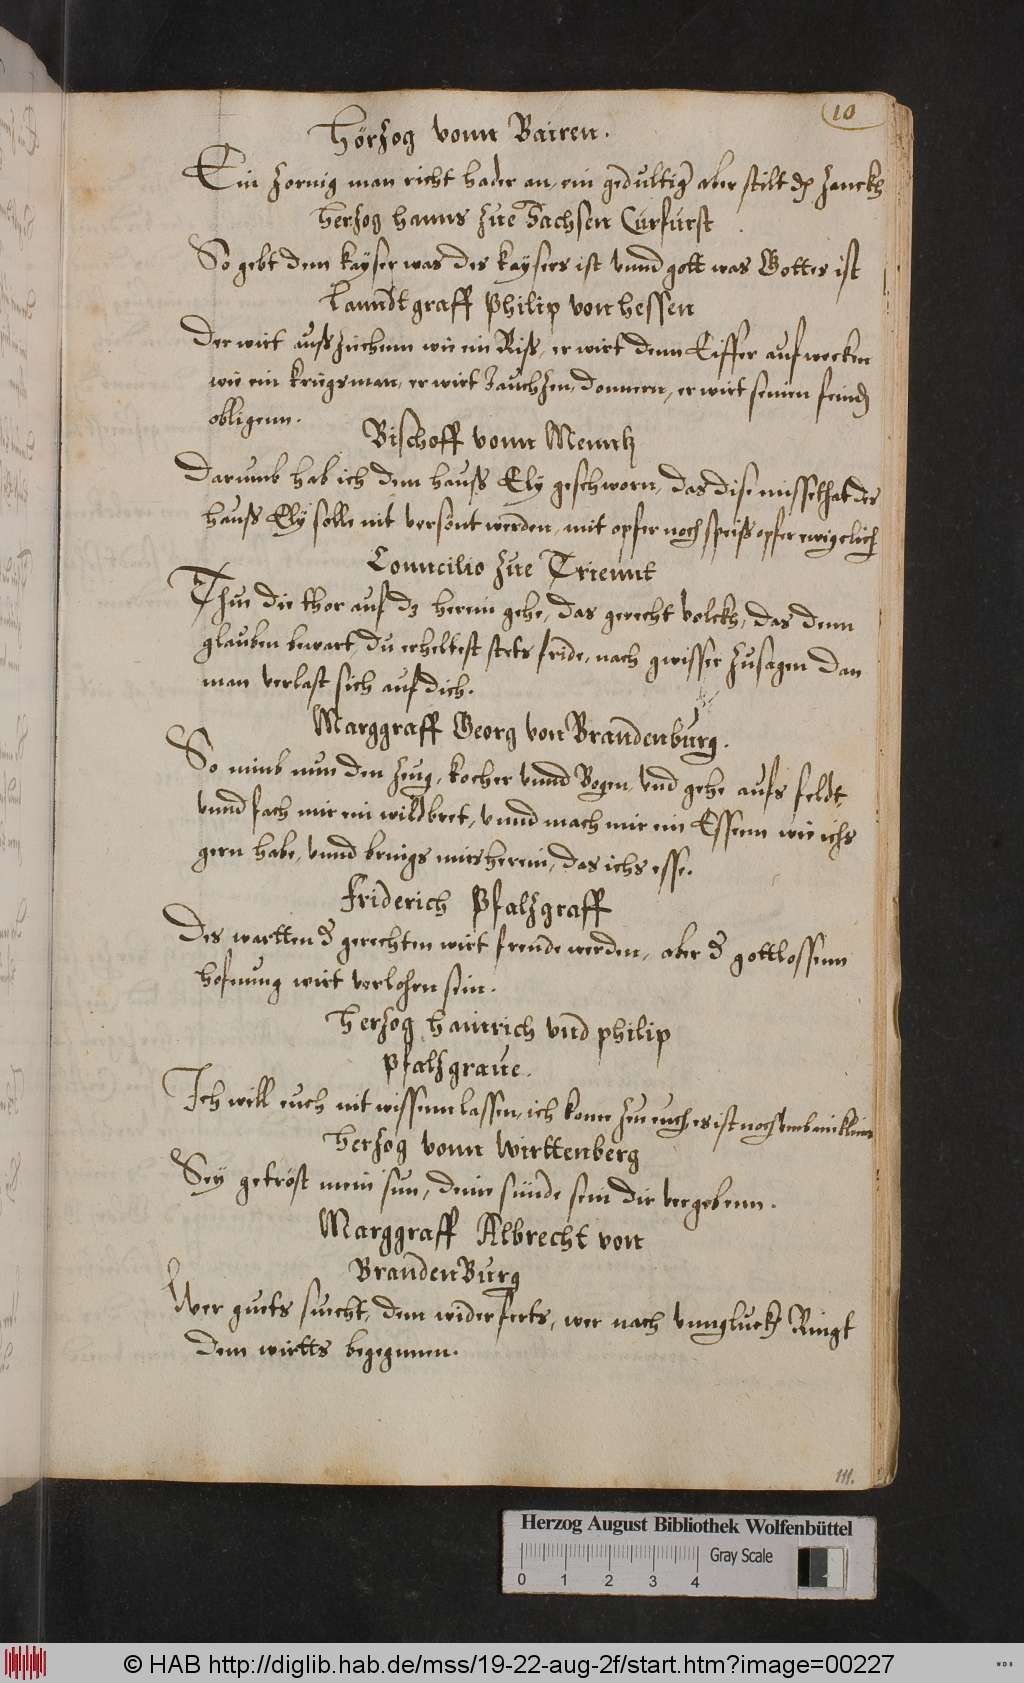 10
Hörzog vonn Bairen.
Ein zornig man richt hader an, ein gedultiger aber stilt den zanckh
Herzog Hanns zue Sachsen Curfurst
So gebt dem kayser was des kaysers ist vnnd gott was Gottes ist
Lanndtgraff Philip von Hessen
Der wirt ausszichenn wie ein Riss, er wirt denn Eiffer aufwecken
wie ein kriegsman, er wirt Jauchzen, donnern, er wirt seinen feinden
obligenn.
Bischoff vonn Menntz
Darumb hab ich dem hauss Ely geschworn, das dise missethat des
hauss Ely solle nit versönt werden, mit opfer noch speiss opfer ewigclich
Conncilio zue Triennt
Thue die thor auf dz herein gehe, das gerecht volckh, das denn
glauben bewart, du erheltest stets fride, nach gwisser zusagen dan
man verlast sich auf dich.
Marggraff Georg von Brandenburg.
So nimb nun den zeug, kocher vnnd Bogen, vnd gehe aufs feldt,
vnnd fach mir ein wildbret, vnnd mach mir ein Essenn wie ichs
gern habe, vnnd brings mirs herein, das ichs esse.
Friderich Pfalzgraff
Des wartten der gerechten wirt freude werden, aber der gottlossenn
hofnung wirt verlohrn sein.
Herzog Hainrich vnd philip
pfalzgraue.
Ich will euch nit wissenn lassen, ich komm zu euch es ist noch vmb ein kleins
Herzog vonn Wirttenberg
Sey getröst mein sun, deine sünde sein dir vergebenn.
Marggraff Albrecht von
BrandenBurg
Wer guets suecht, dem widerferts, wer nach vngluckh Ringt
dem wirtts begegnnen.
111.
Herzog August Bibliothek Wolfenbüttel
Gray Scale
0 1 2 3 4
© HAB http://diglib.hab.de/mss/19-22-aug-2f/start.htm?image=00227